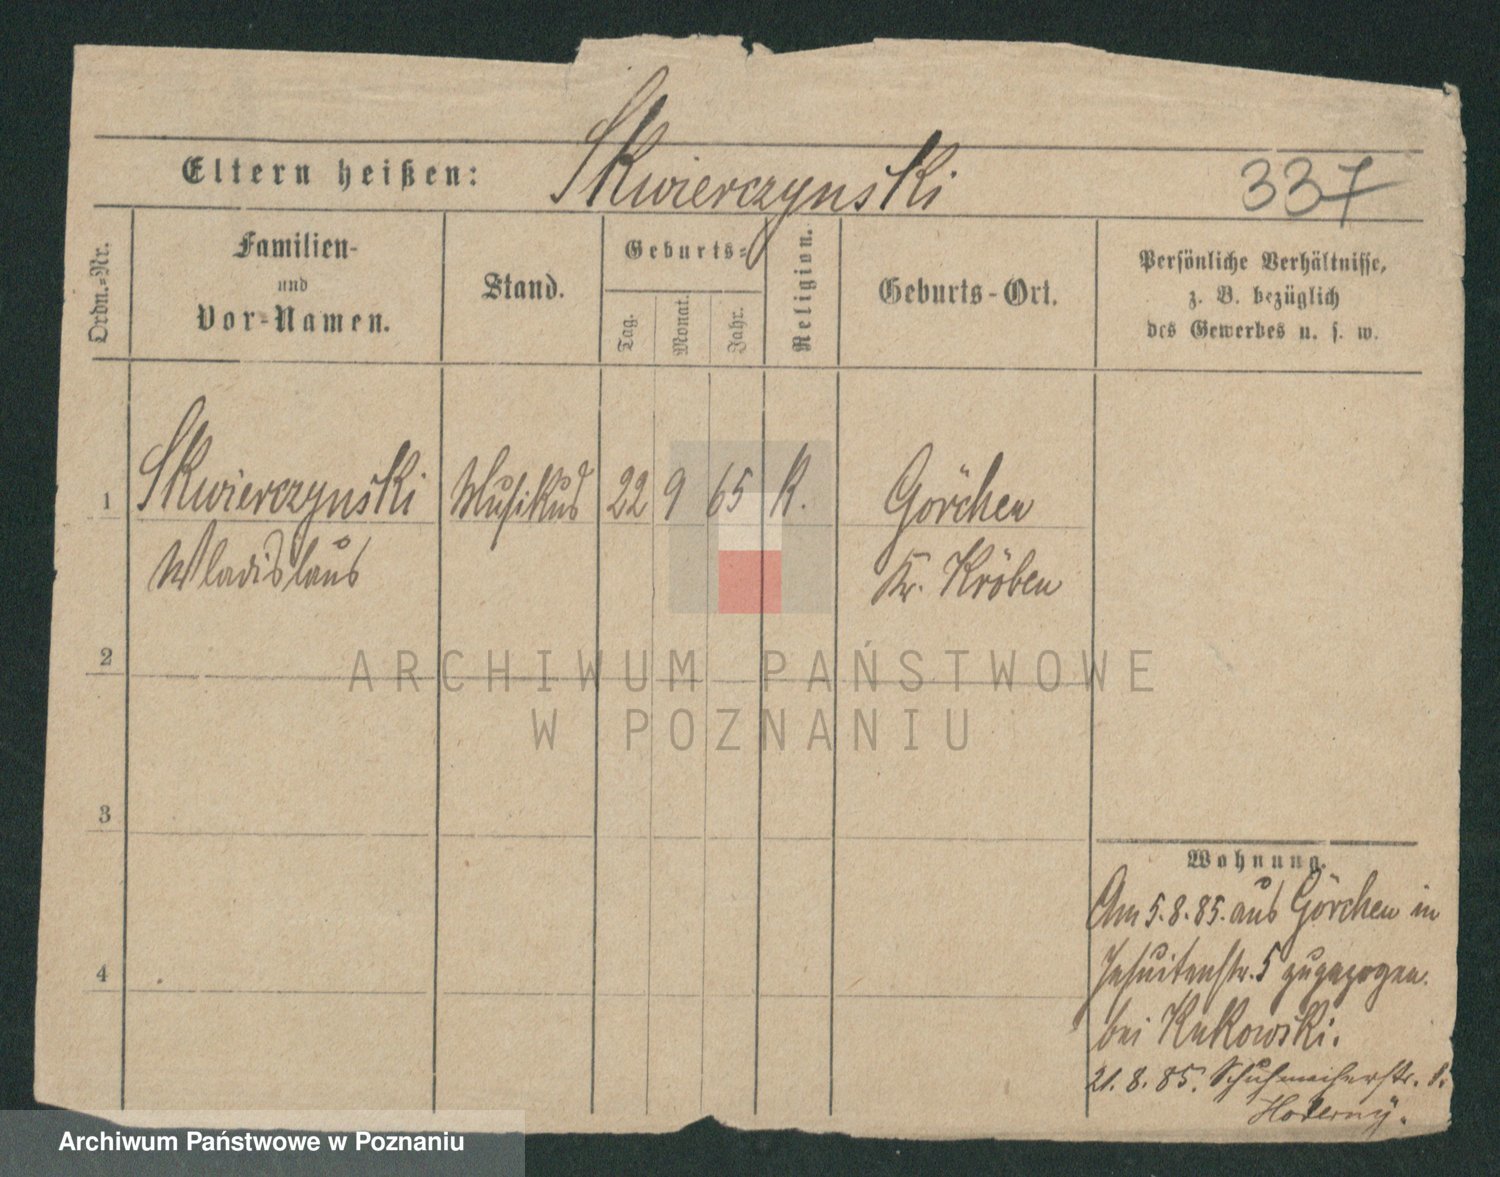 Eltern heißen: Skwierczynski 337
Ordn.=Nr.
Familien-
und
Vor-Namen.
Stand.
Geburts=
Tag.
Monat.
Jahr.
Religion.
Geburts-Ort.
Persönliche Verhältnisse,
z. B. bezüglich
des Gewerbes u. s. w.
1 Skwierczynski Musikus 22 9 65 K. Görchen
Wladislaus Kr. Kröben
2
3
4
Wohnung.
Am 5.8.85. aus Görchen in
Jesuitenstr. 5 zugezogen.
bei Kukowski.
21.8.85. Schuhmacherstr.
ARCHIWUM PAŃSTWOWE
W POZNANIU
Archiwum Państwowe w Poznaniu